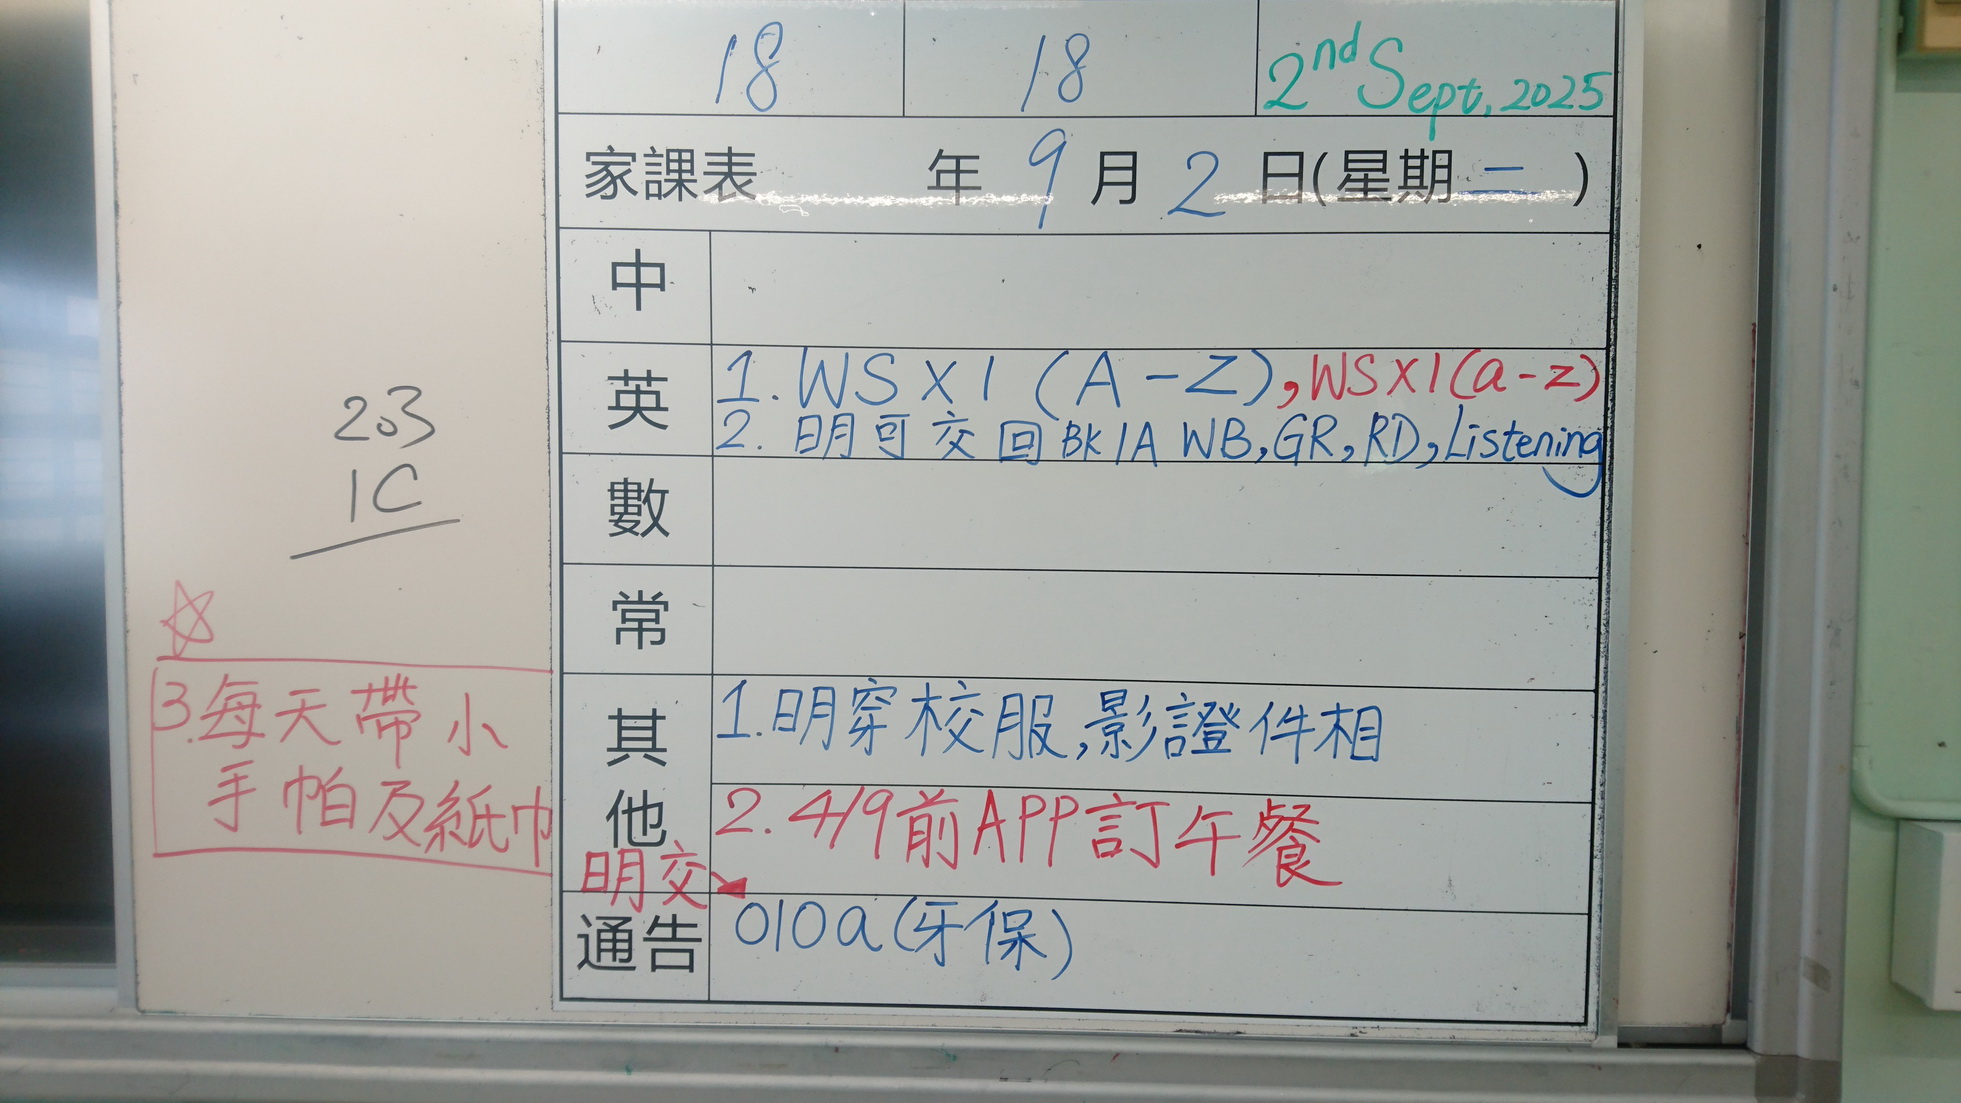 18 18 2nd Sept, 2025
家課表 年 9 月 2 日(星期二)
中
英 1. WS X 1 (A-Z), WS X 1 (a-z)
2. 明可交回 BK 1A WB, GR, RD, Listening
數
常
其他
1. 明穿校服, 影證件相
2. 4/9前APP訂午餐
明交
通告 010a (牙保)
203
1C
3. 每天帶小
手帕及紙巾